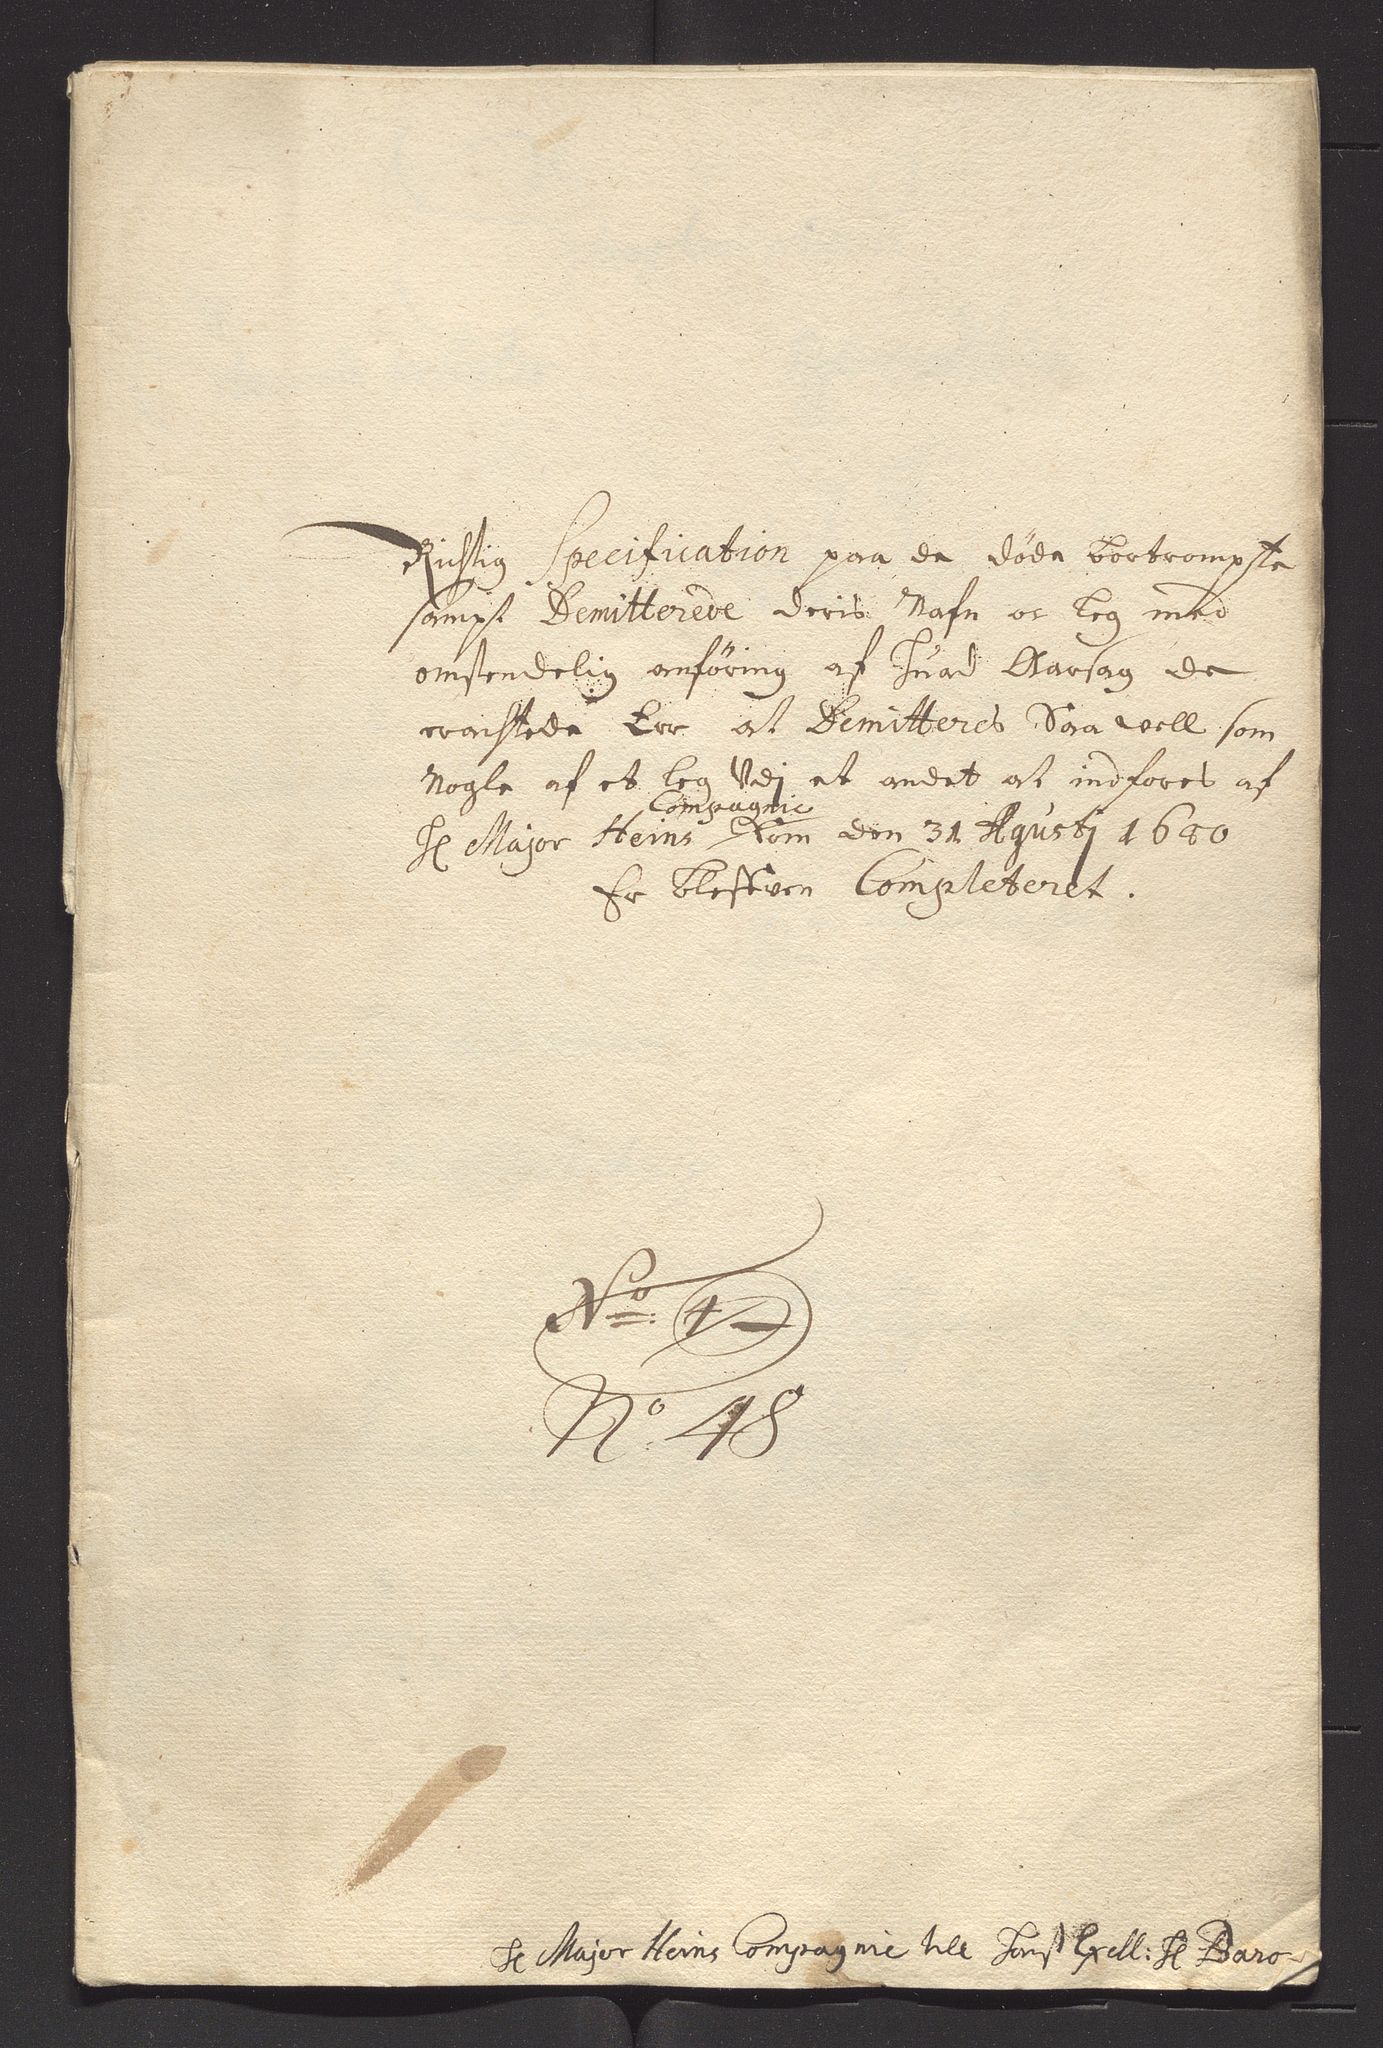 Richtig Specification paa de døde bortrømpste
sampt Demitterede deris Nafn oc leg med
omstendelig anføring af huad Aarsag de
eractede Err at Demitteres Saa vell som
Nogle af et leg Vdj et andet at indføres af
H Major Heins Compagnie Som den 31 Agustj 1680
Er bleffven Completeret.
No: 4
No 48
H Major Heins Compagnie till hans Exell: H Baro